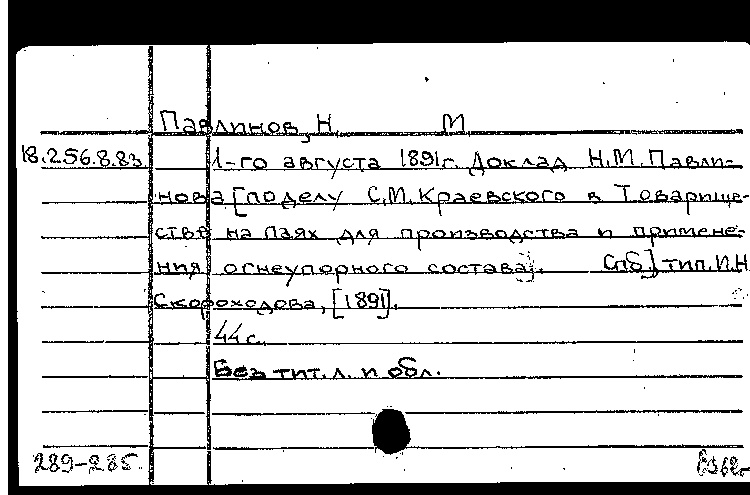 Павлинов, Н. М.
18.256.8.83. 1-го августа 1891г. Доклад Н.М. Павли-
нова [поделу С.М. Краевского в Товарище-
стве на паях для производства и примене-
ния огнеупорного состава]. Спб.] тип. И.Н.
Скороходова, [1891].
44 с.
Без тит. л. и обл.
289-285.